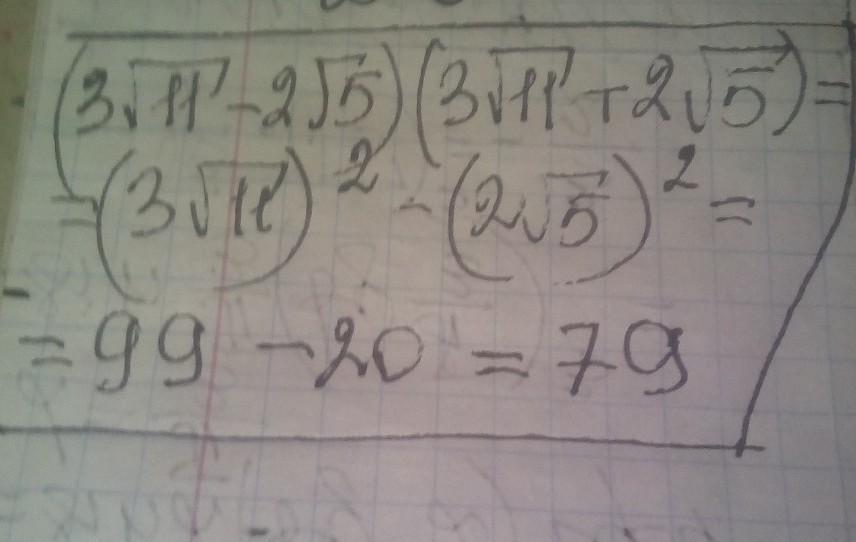 (3√11 - 2√5)(3√11 + 2√5) =
= (3√11)² - (2√5)² =
= 99 - 20 = 79